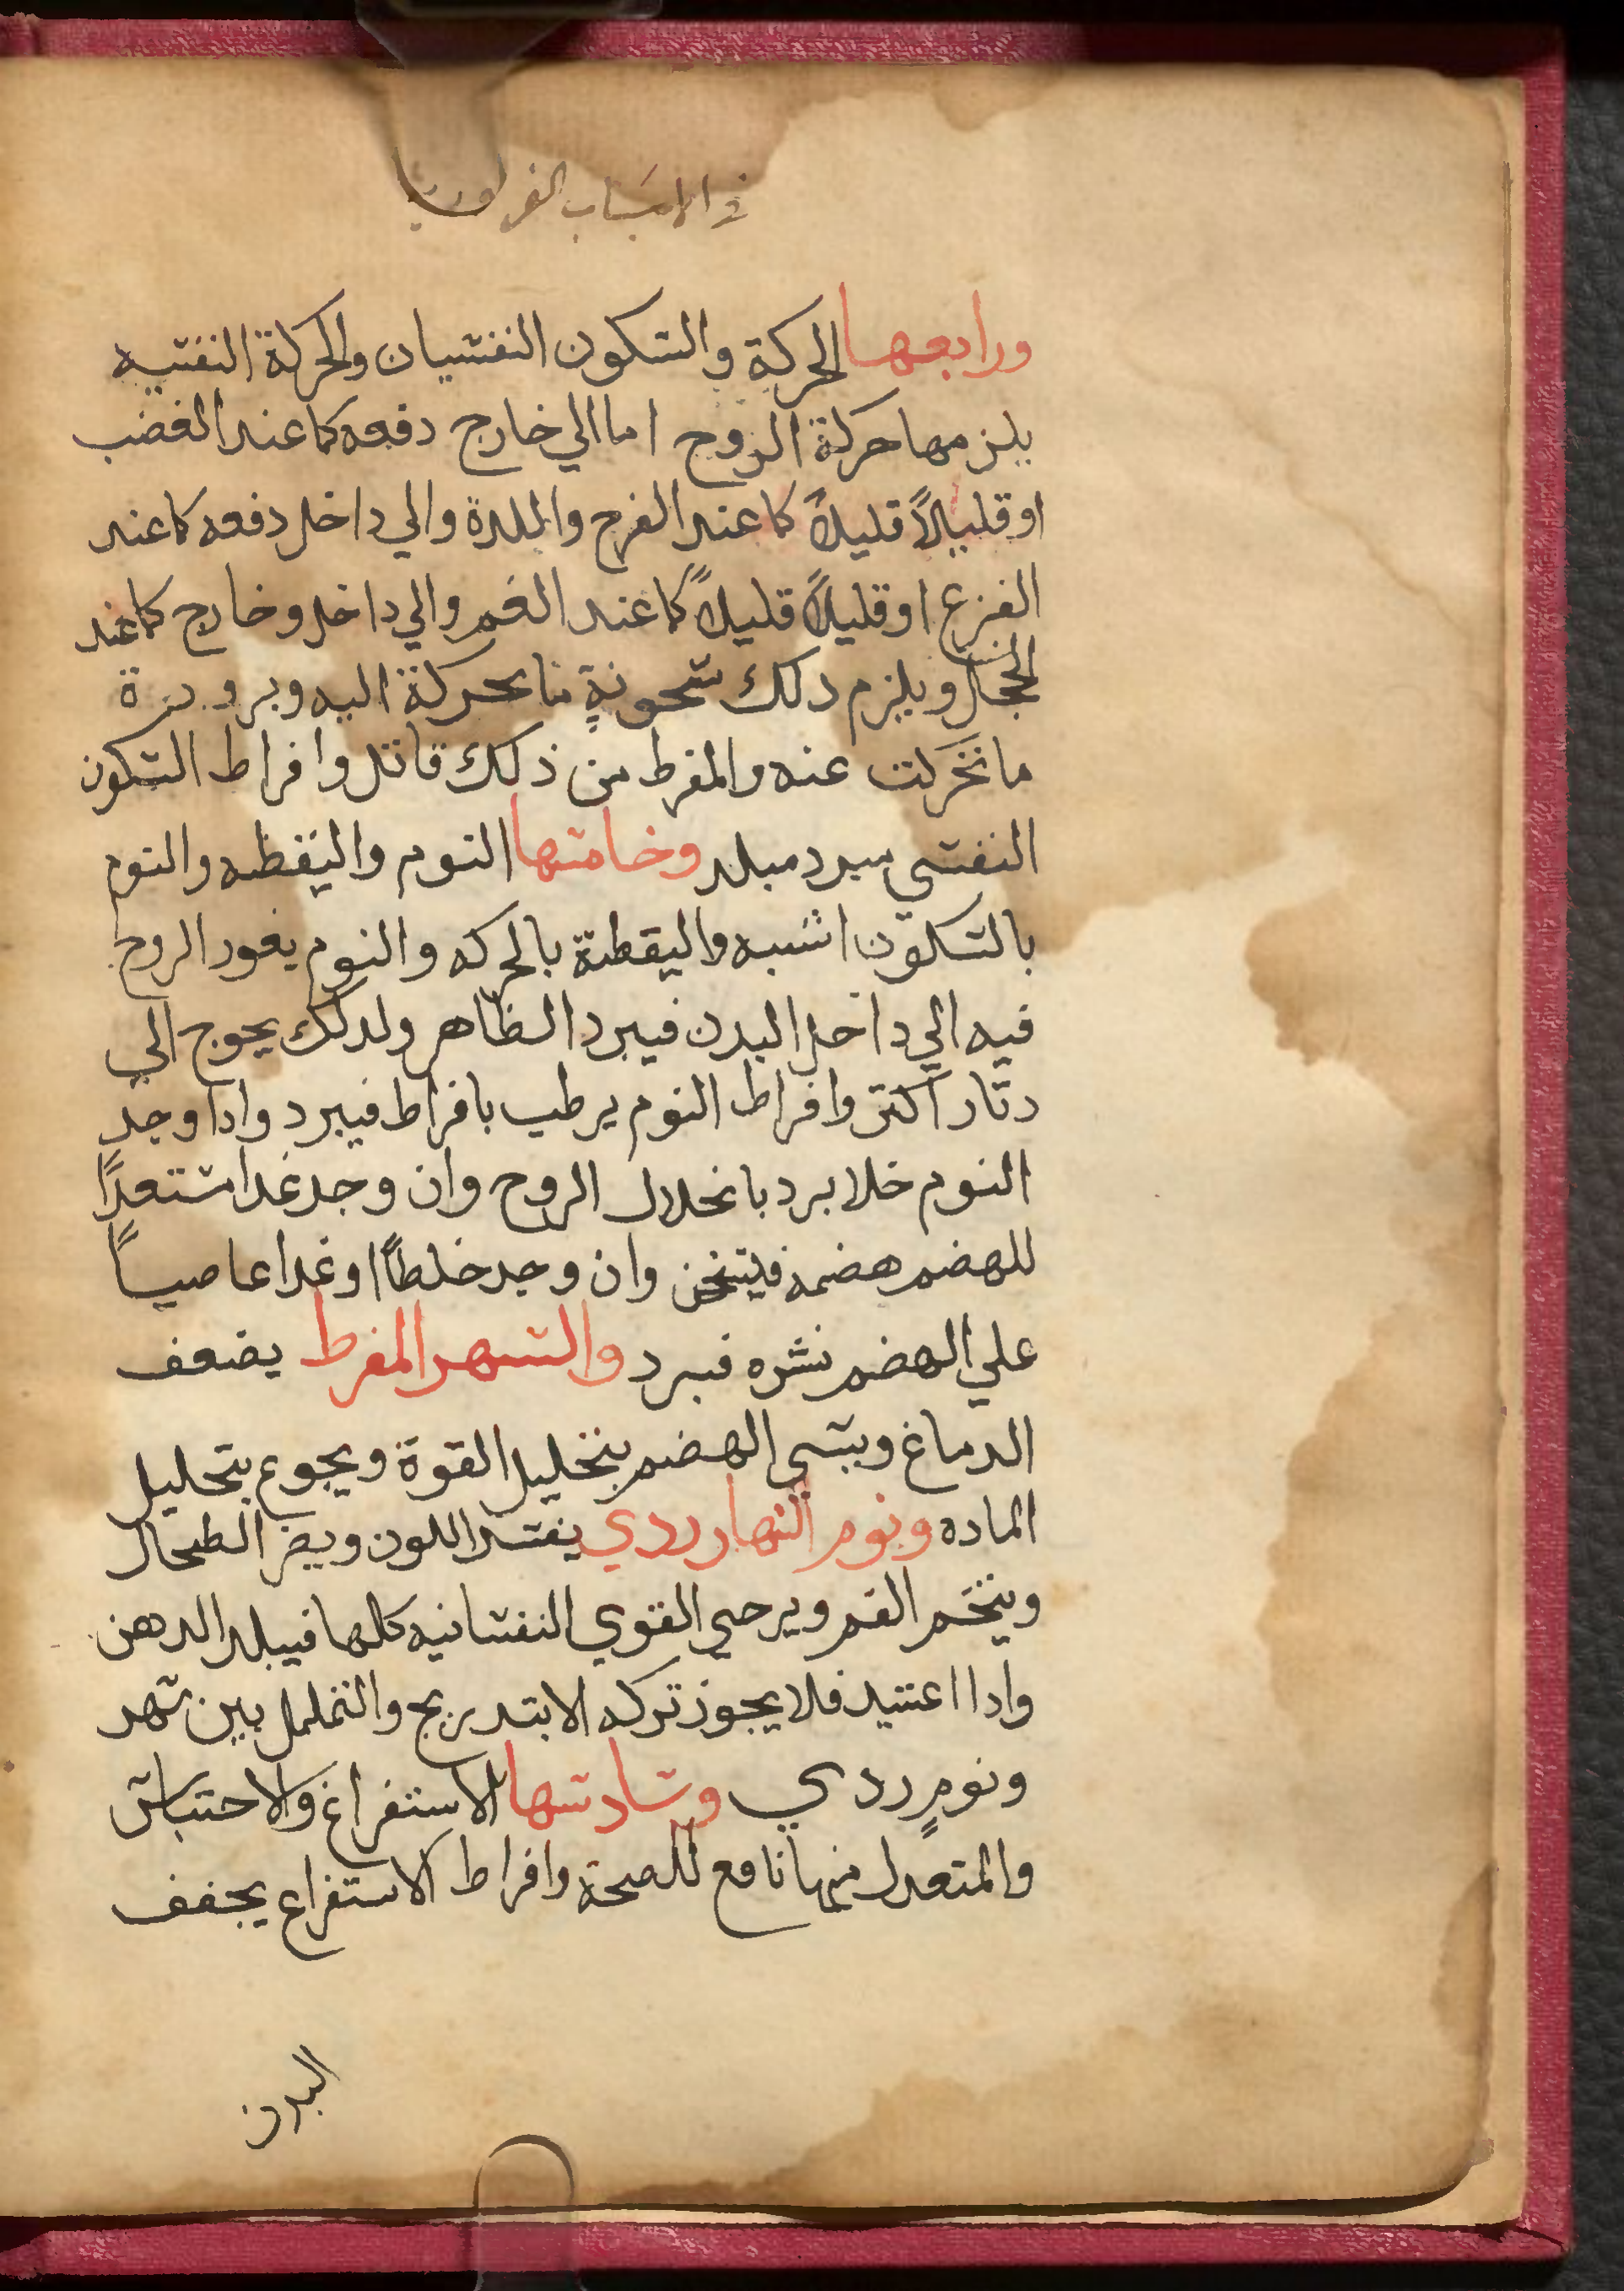 في الاسباب الضرورية
ورابعها الحركة والسكون النفسيان والحركة النفسيه
يلزمها حركة الروح اما الي خارج دفعه كما عند الغضب
او قليلاً قليلاً كما عند الفرح والملدة والي داخل دفعه كما عند
الفزع او قليلاً قليلاً كما عند الغم والي داخل وخارج كما عند
الخجل ويلزم دلك سخونةٍ ما تحركة اليه وبرودة
ما تحركت عنه والمفرط من ذلك قاتل وافراط السكون
النفسي مبرد مبلد وخامسها النوم واليقظه والنوم
بالسكون اشبه واليقظة بالحركه والنوم يغور الروح
فيه الي داخل البدن فيبرد الظاهر ولدلك يحوج الي
دثار اكثر وافراط النوم يرطب بافراط فيبرد وادا وجد
النوم خلا برد بانحلال الروح وان وجد غدا مستعدًا
للهضم هضمه فيسخن وان وجد خلطًا او غدا عاصيًا
علي الهضم نشره فبرد والسهر المفرط يضعف
الدماغ ويسي الهضم بتحليل القوة ويجوع بتحليل
الماده ونوم النهار ردي يفسد اللون ويضر الطحال
ويبخر الفم ويرخي القوي النفسانيه كلها فيبلد الدهن
وادا اعتيد فلا يجوز تركه الا بتدريج والتململ بين سهد
ونومٍ ردي وسادسها الاستفراغ والاحتباس
والمتعدل منهما نافع للصحة وافراط الاستفراع يجفف
البدن